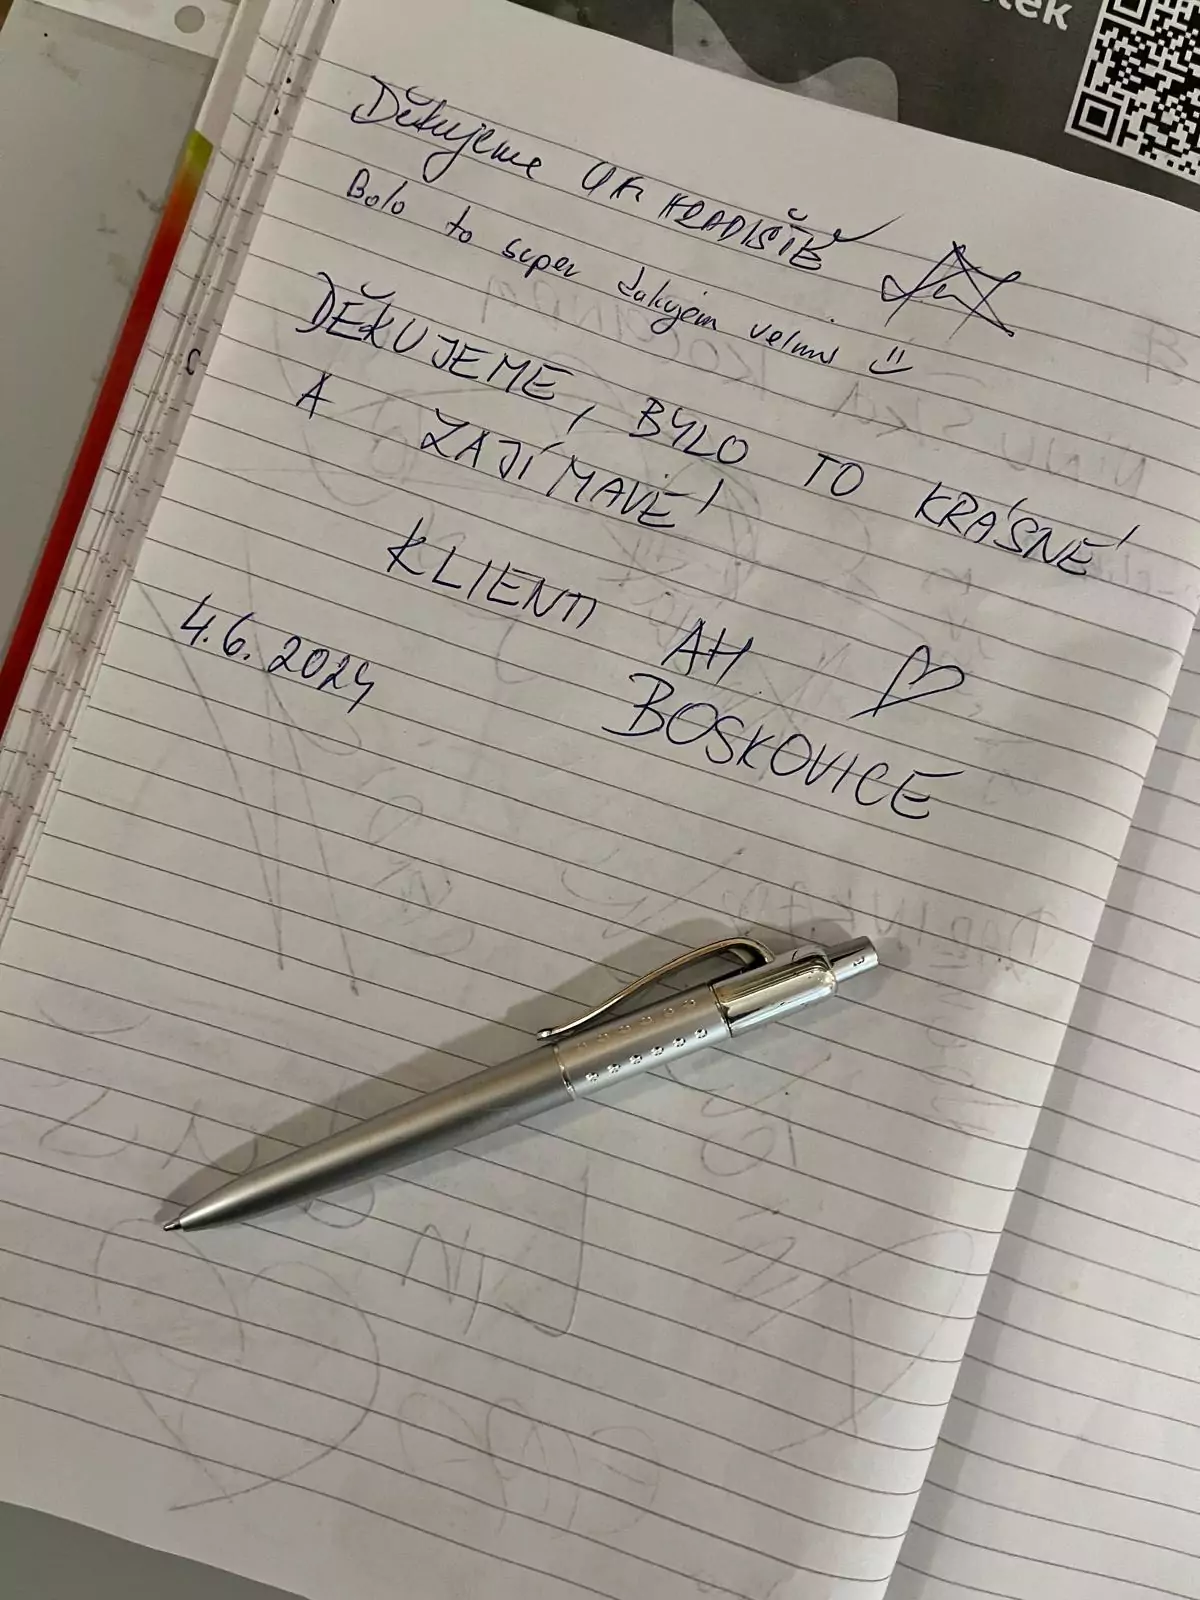 Děkujeme
HRADIŠTĚ
Bolo to super ďakujem velmi
DĚKUJEME, BYLO TO KRÁSNÉ
A ZAJÍMAVÉ!
KLIENTI AH
BOSKOVICE
4.6. 2024